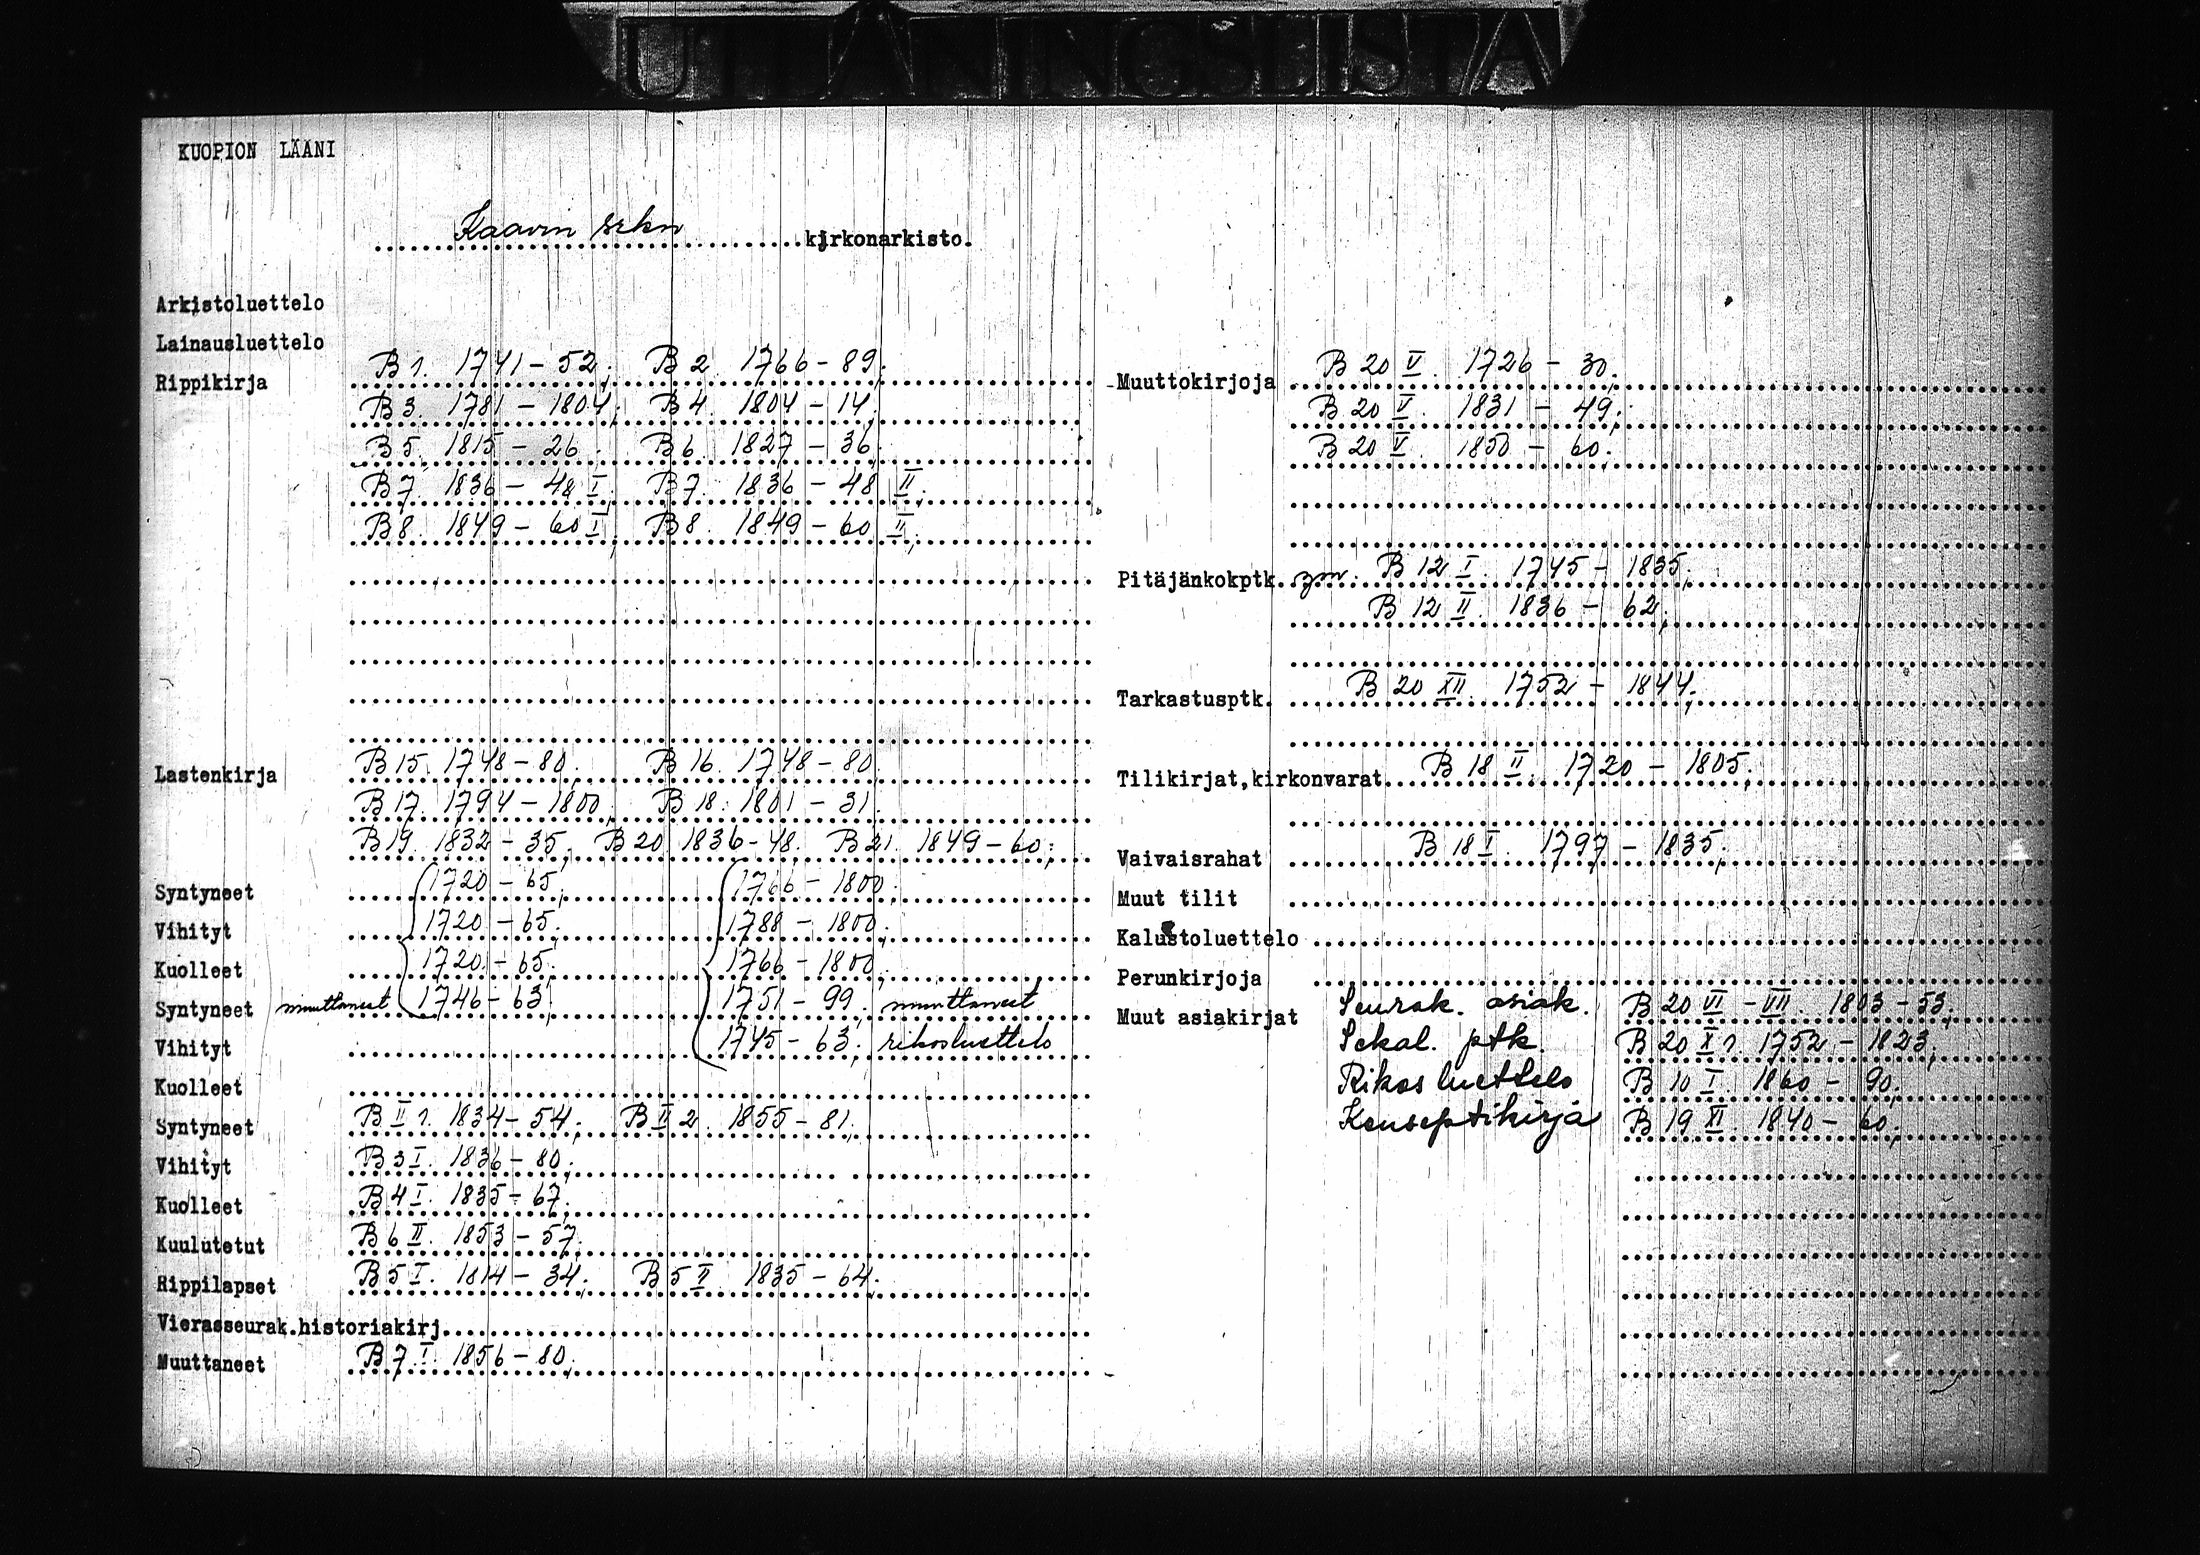 UTLÅNINGSLISTA
KUOPION LÄÄNI
Kaavin srkn kirkonarkisto.
Arkistoluettelo
Lainausluettelo
Rippikirja B 1. 1741-52; B 2. 1766-89;
B 3. 1781-1804; B 4. 1804-14;
B 5. 1815-26. B 6. 1827-36;
B 7. 1836-48 I; B 7. 1836-48 II;
B 8. 1849-60 I; B 8. 1849-60 II;
Lastenkirja B 15. 1748-80; B 16. 1748-80.
B 17. 1794-1800; B 18. 1801-31.
B 19. 1832-35; B 20 1836-48. B 21. 1849-60;
Syntyneet 1720-65; 1766-1800;
Vihityt 1720-65; 1788-1800;
Kuolleet 1720-65; 1766-1800;
Syntyneet muuttaneet 1746-63; 1751-99; muuttaneet
Vihityt 1745-63; rikosluettelo
Kuolleet
Syntyneet B II 1. 1834-54; B II 2. 1855-81;
Vihityt B 3 I. 1836-80;
Kuolleet B 4 I. 1835-67;
Kuulutetut B 6 II. 1853-57;
Rippilapset B 5 I. 1814-34; B 5 II. 1835-64;
Vierasseurak.historiakirj.
Muuttaneet B 7 I. 1856-80;
Muuttokirjoja B 20 V. 1726-30;
B 20 V. 1831-49;
B 20 V. 1850-60;
Pitäjänkokptk. ym. B 12 I. 1745-1835;
B 12 II. 1836-62;
Tarkastusptk. B 20 XII. 1752-1844;
Tilikirjat,kirkonvarat B 18 II. 1720-1805;
Vaivaisrahat B 18 I. 1797-1835;
Muut tilit
Kalustoluettelo
Perunkirjoja
Muut asiakirjat Seurak. asiak. B 20 VI-VII. 1803-53;
Sekal. ptk. B 20 X 1. 1752-1823;
Rikosluettelo B 10 I. 1860-90;
Konseptikirja B 19 XI. 1840-60;